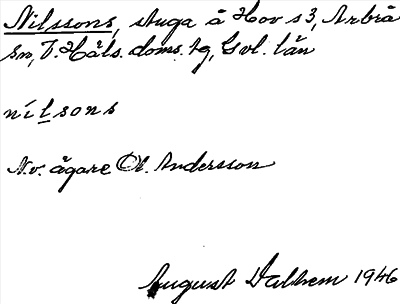 Nilssons, stuga å Hov s3, Arbrå
sn, V. Häls. doms. tg, Gvl. län
nilsons
Nv. ägare Ol. Andersson
August Dalhem 1946